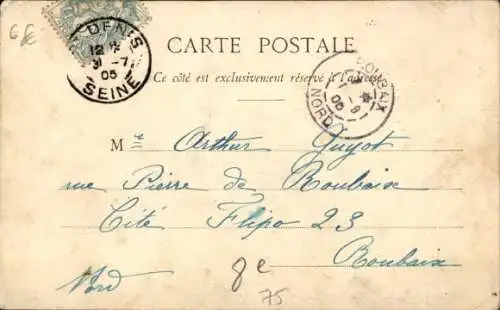 6€
DENIS
12
31 -7
05
SEINE
CARTE POSTALE
Ce côté est exclusivement réservé à l'adresse
ROUBAIX
05
NORD
Mlle Arthur Guyot
rue Pierre de Roubaix
Cité Flipo 23
Roubaix
Nord
8e
75